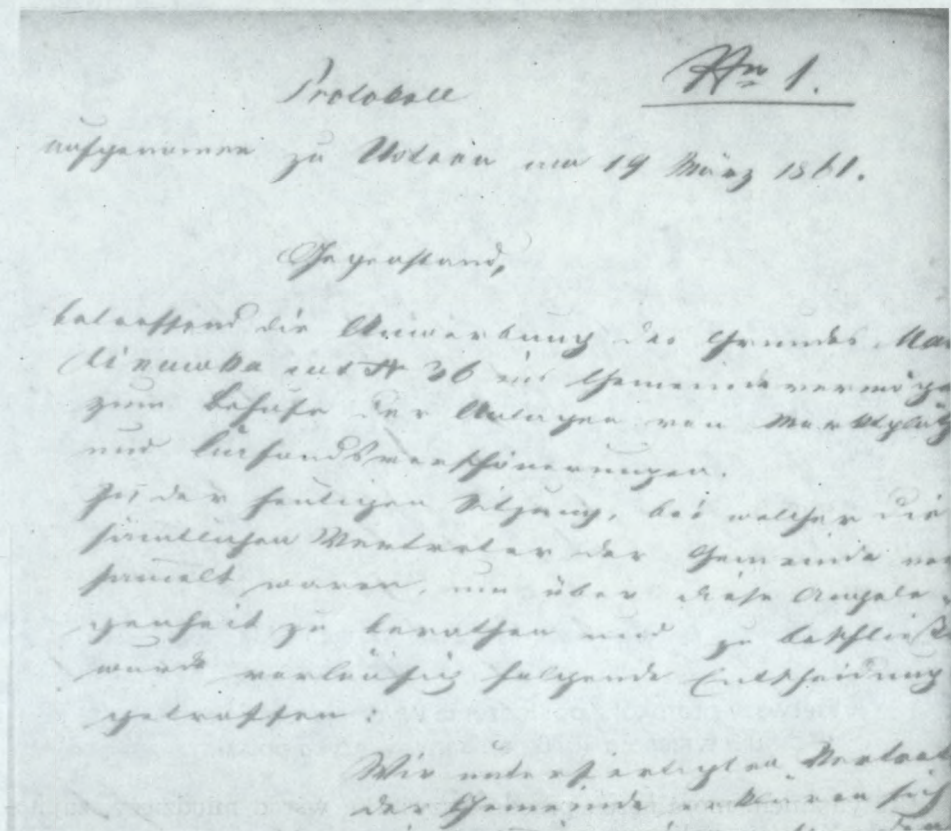 Protokoll
Nro 1.
aufgenomen zu Ustron am 19 März 1861.
Gegenstand,
betreffend die Anwerbung des Grundes
sub N 36 als Gemeindevermöge
zum Behufe der Anlagen von Marktplatz
und
In der heutigen Sitzung, bei welcher die
sämtlichen Vertreter der Gemeinde ver
samelt waren, um über diese Angele
genheit zu berathen und zu beschließ
wurde vorläufig folgende Entscheidung
getroffen:
Wir unterfertigten Vertret
der Gemeinde erklären sich